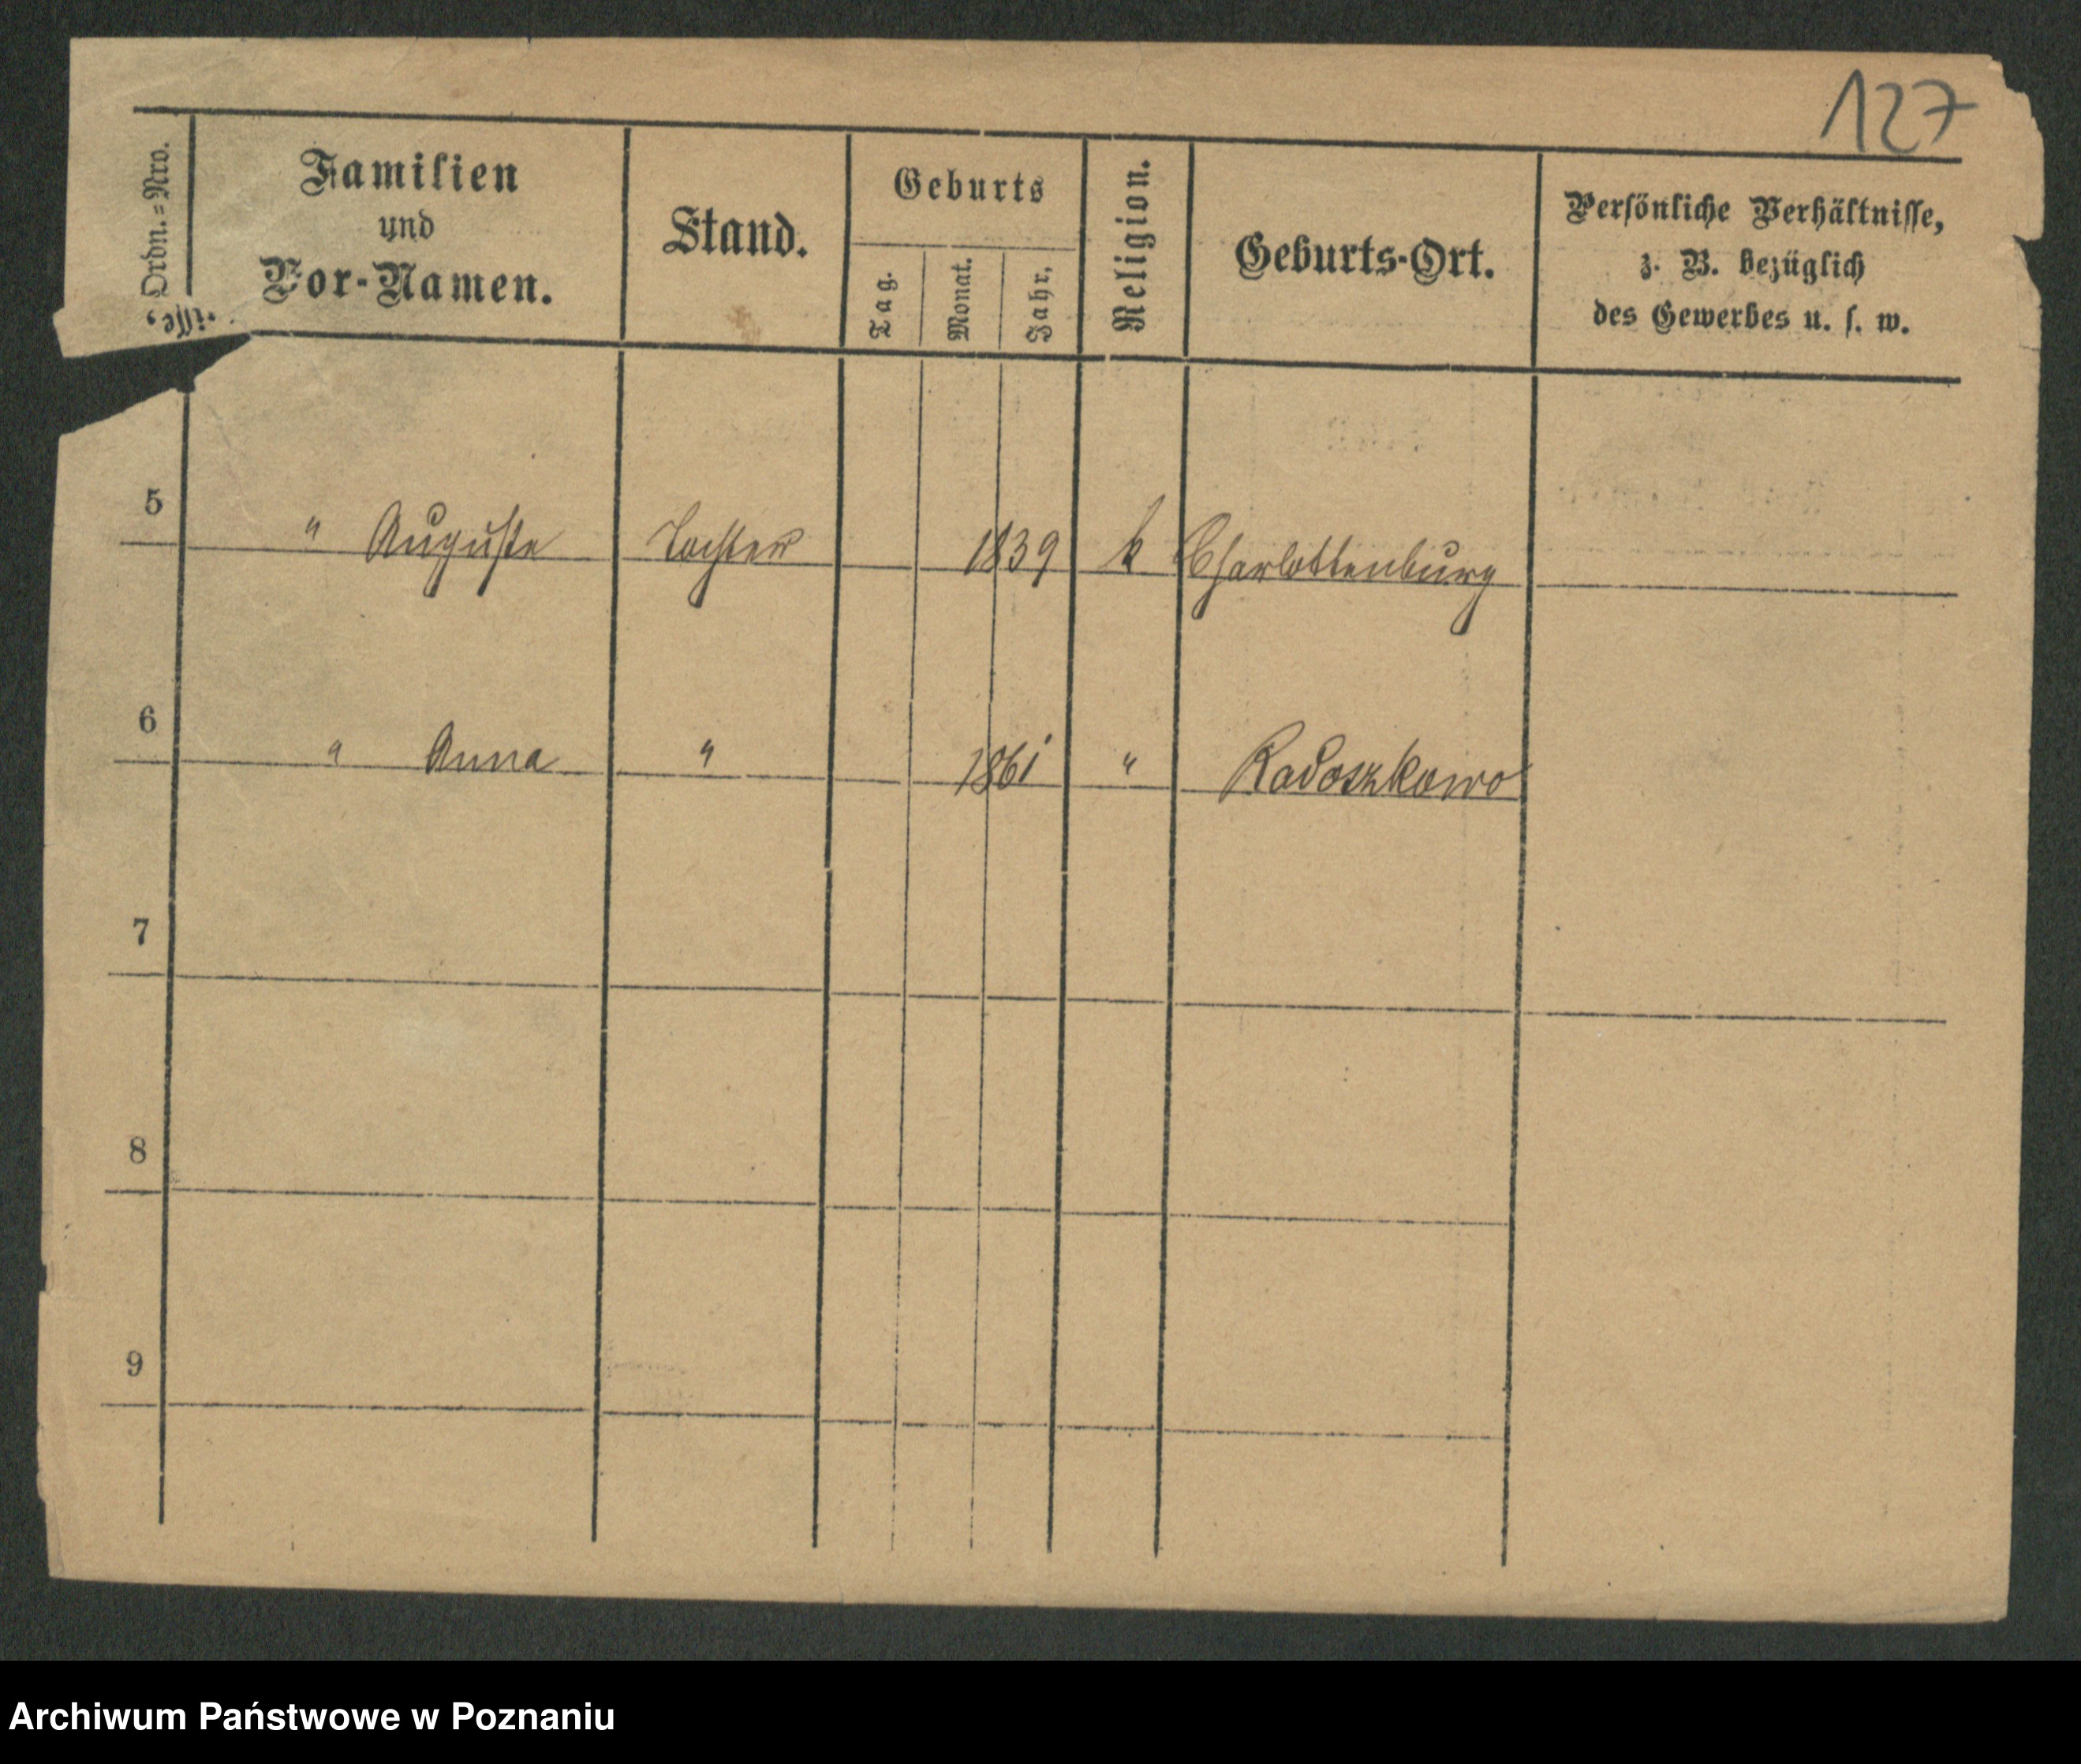 127
Ordn.=Nro.
Familien
und
Vor-Namen.
Stand.
Geburts
Tag.
Monat.
Jahr.
Religion.
Geburts-Ort.
Persönliche Verhältnisse,
z. B. bezüglich
des Gewerbes u. s. w.
5 " Auguste Tochter 1839 k Charlottenburg
6 " Anna " 1861 " Radoszkowo
7
8
9
Archiwum Państwowe w Poznaniu